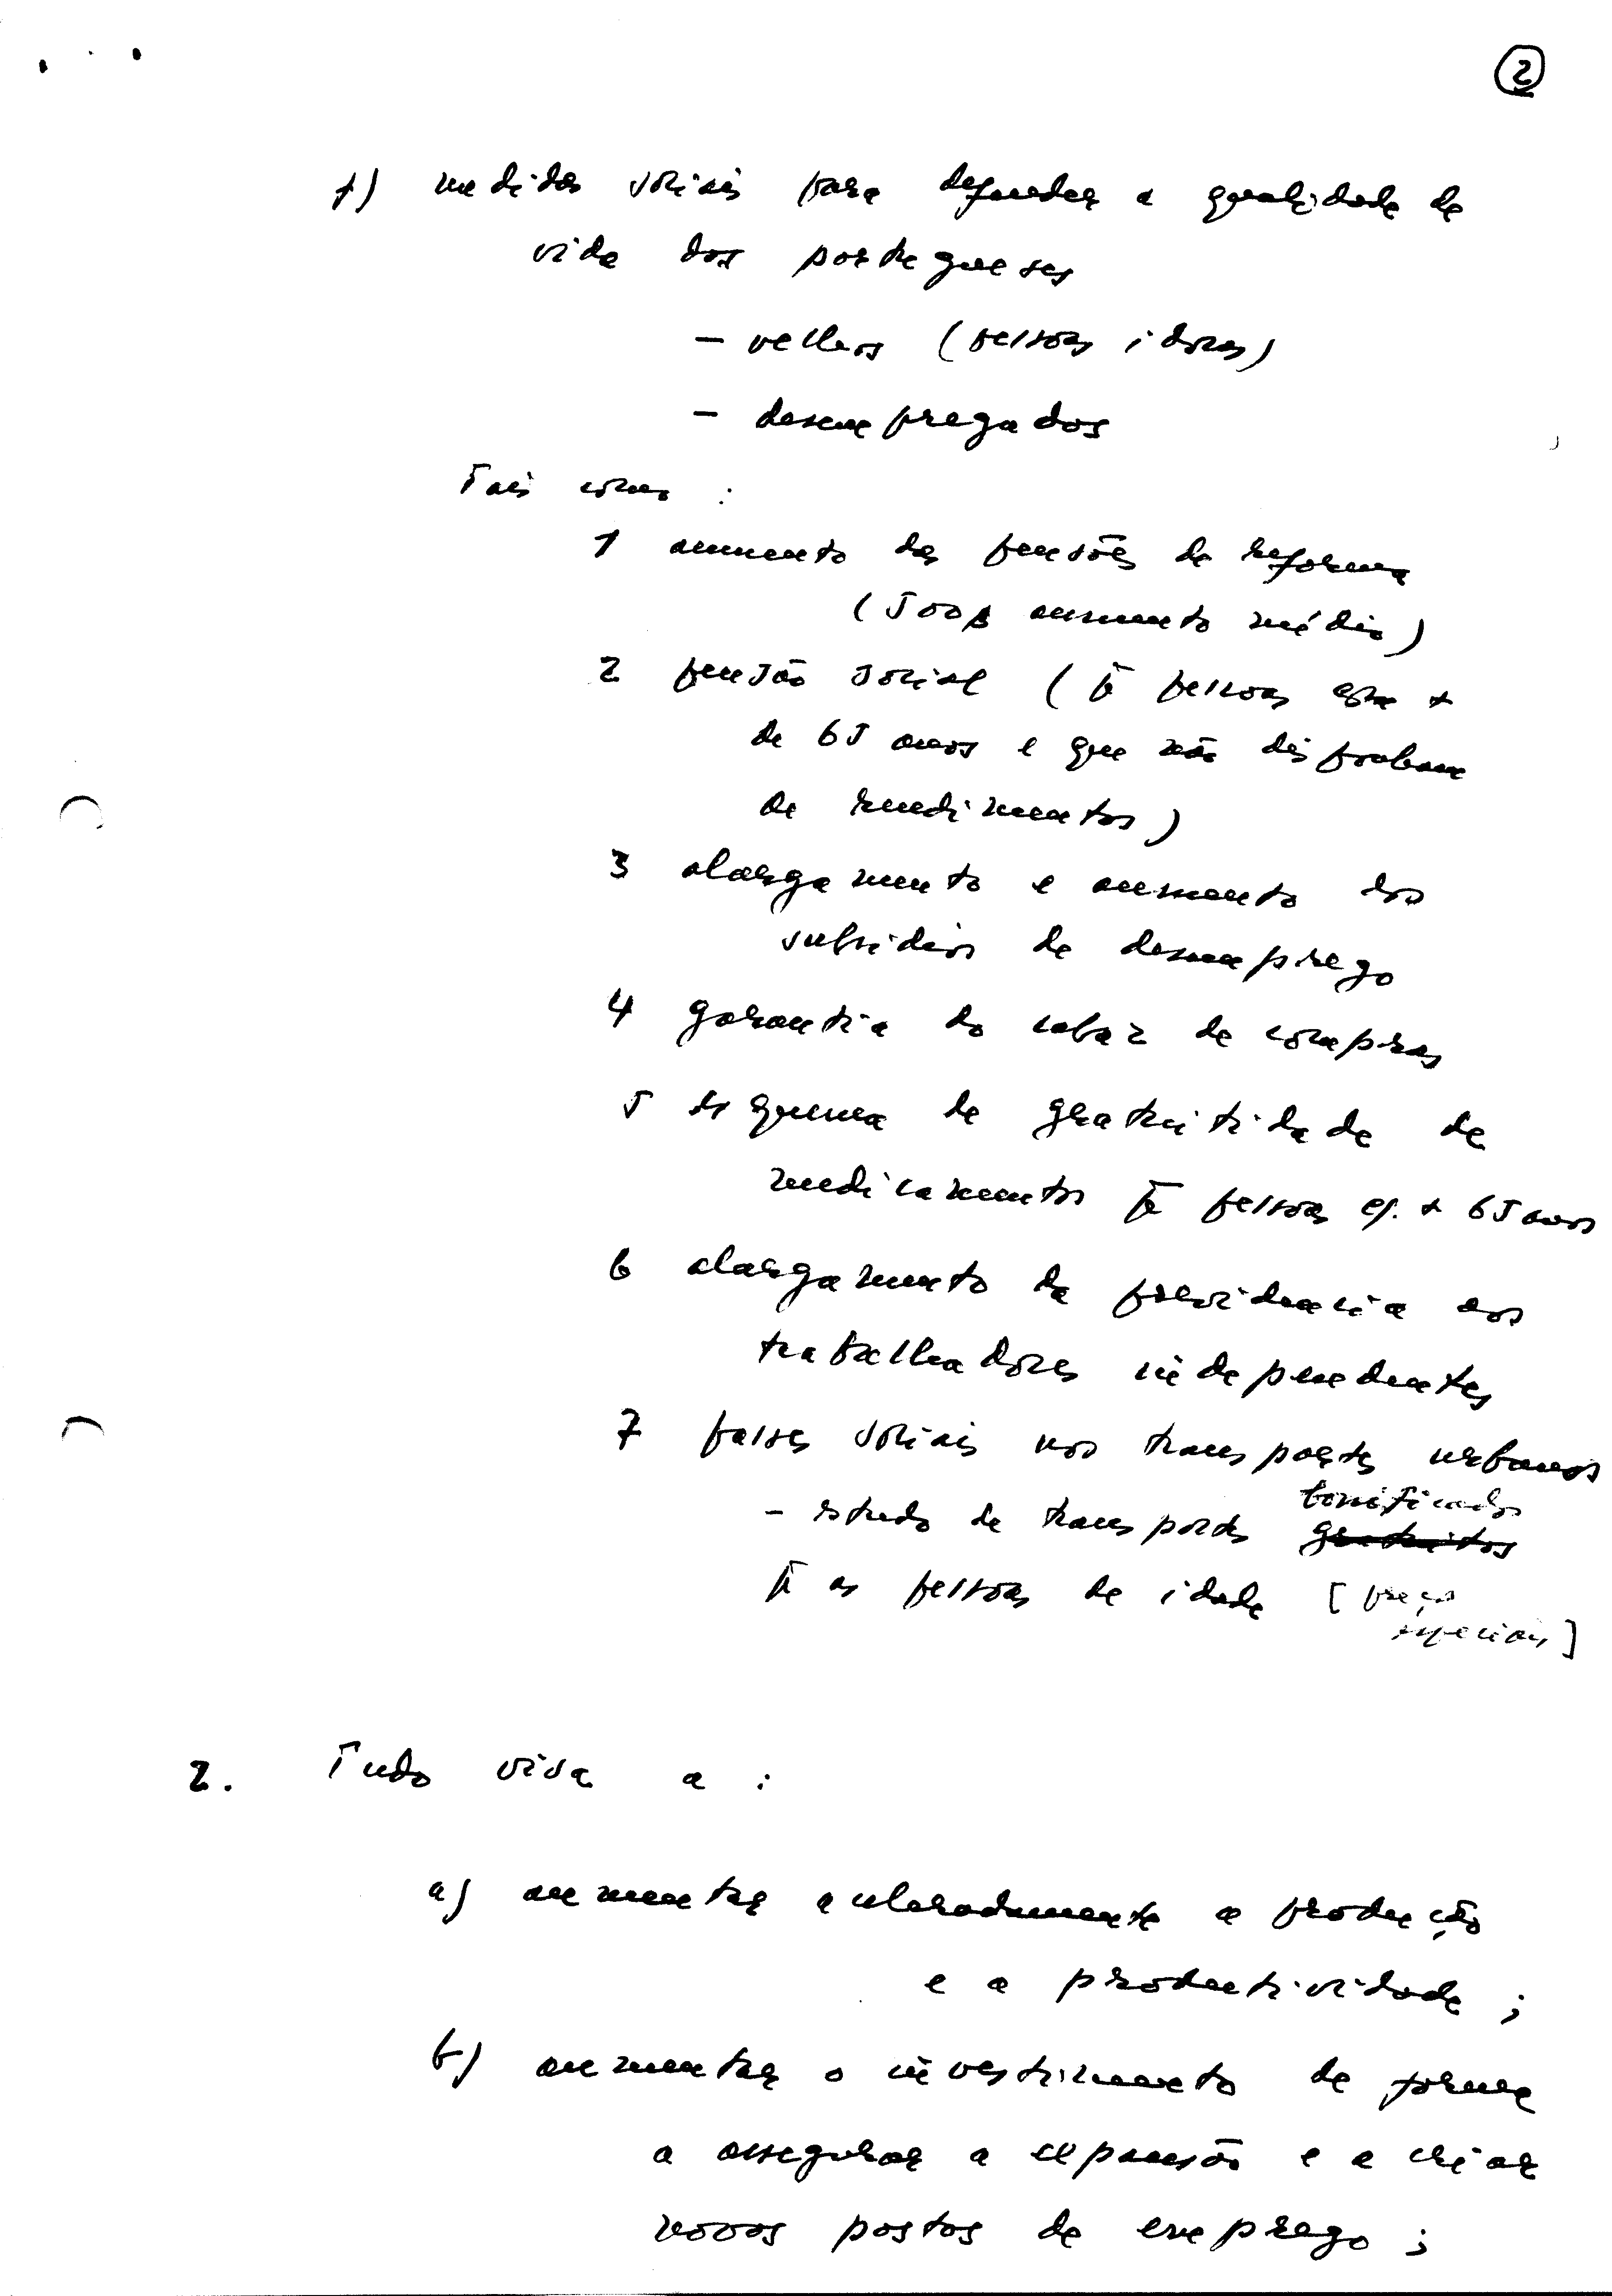 2
f) medidas sociais para defender a qualidade de
vida dos portugueses
– velhos (pessoas idosas)
– desempregados
Tais como :
1 aumento das pensões de reforma
(500$ aumento médio)
2 pensão social (p^a pessoas com +
de 65 anos e que não disfrutam
de rendimentos)
3 alargamento e aumento dos
subsídios de desemprego
4 garantia do cabaz de compras
5 esquema de gratuitidade de
medicamentos p^a pessoas c/. + 65 anos
6 alargamento da previdencia aos
trabalhadores independentes
7 passes sociais nos transportes urbanos
bonificados
– estudo de transportes gratuitos
p^a as pessoas de idade [preços
especiais]
2. Tudo visa a :
a) aumentar aceleradamente a produção
e a productividade ;
b) aumentar o investimento de forma
a assegurar a expansão e a criar
novos postos de emprego ;